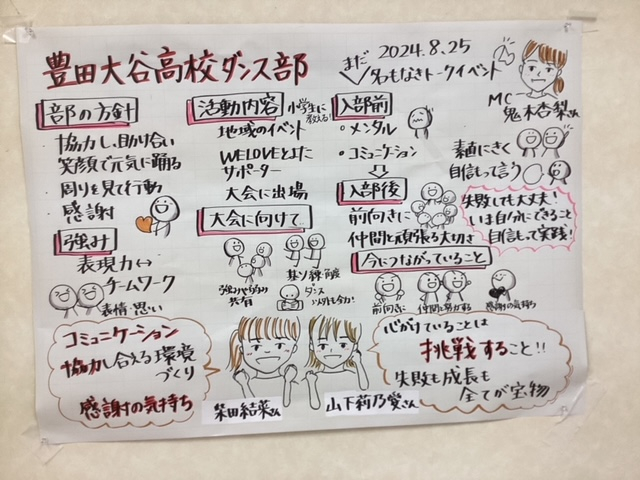 豊田大谷高校ダンス部
まだ 2024.8.25
名もなきトークイベント
MC
鬼木杏梨さん
部の方針
協力し、助け合い
笑顔で元気に踊る
周りを見て行動
感謝
強み
表現力↔
チームワーク
表情・思い
活動内容
小学生に
教える!
地域のイベント
WE LOVE とよた
サポーター
大会に出場
大会に向けて
共有
ダンス
以外も全力!
入部前
・メンタル
・コミュケーション
入部後
前向きに
仲間と頑張る大切さ
今につながっていること
前向きに
仲間と努力する
感謝の気持ち
素直にきく
自信もって言う
失敗しても大丈夫!
いま自分にできること
自信もって実践!
コミュニケーション
協力し合える環境
づくり
感謝の気持ち
柴田結菜さん
山下莉乃愛さん
心がけていることは
挑戦すること!!
失敗も成長も
全てが宝物